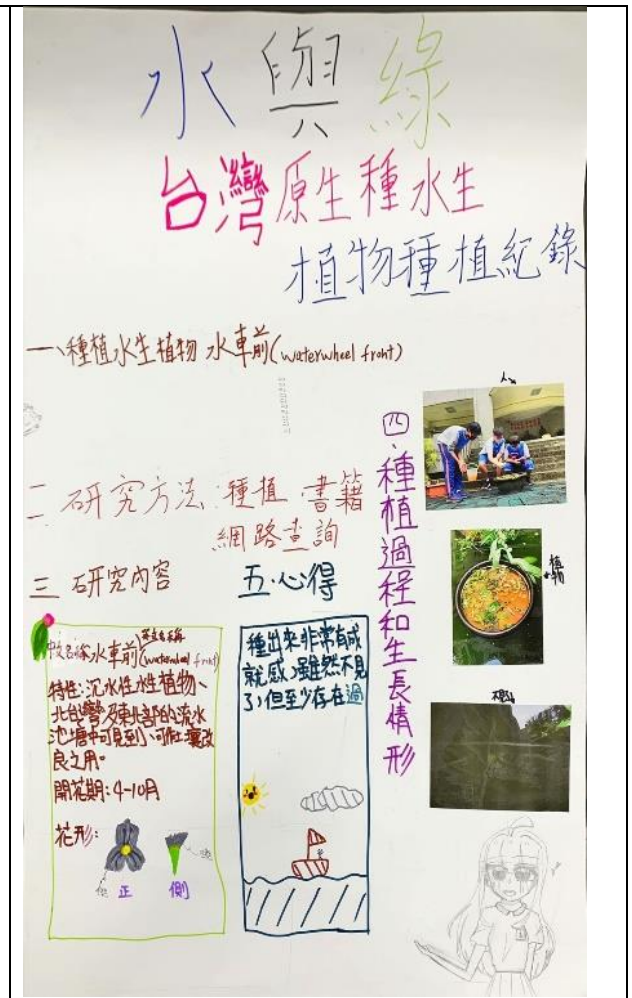 水與綠
台灣原生種水生
植物種植紀錄
一、種植水生植物 水車前(waterwheel front)
二 研究方法:種植 書籍
網路查詢
三 研究內容
水車前 英文名稱(waterwheel front)
特性:沉水性水生植物、
北台灣及東北部的流水
池塘中可見到、可做土壤改
良之用。
開花期:4-10月
花形:
正 側
五.心得
種出來非常有成
就感,雖然不見
了,但至少存在過
四、種植過程和生長情形
人
植物